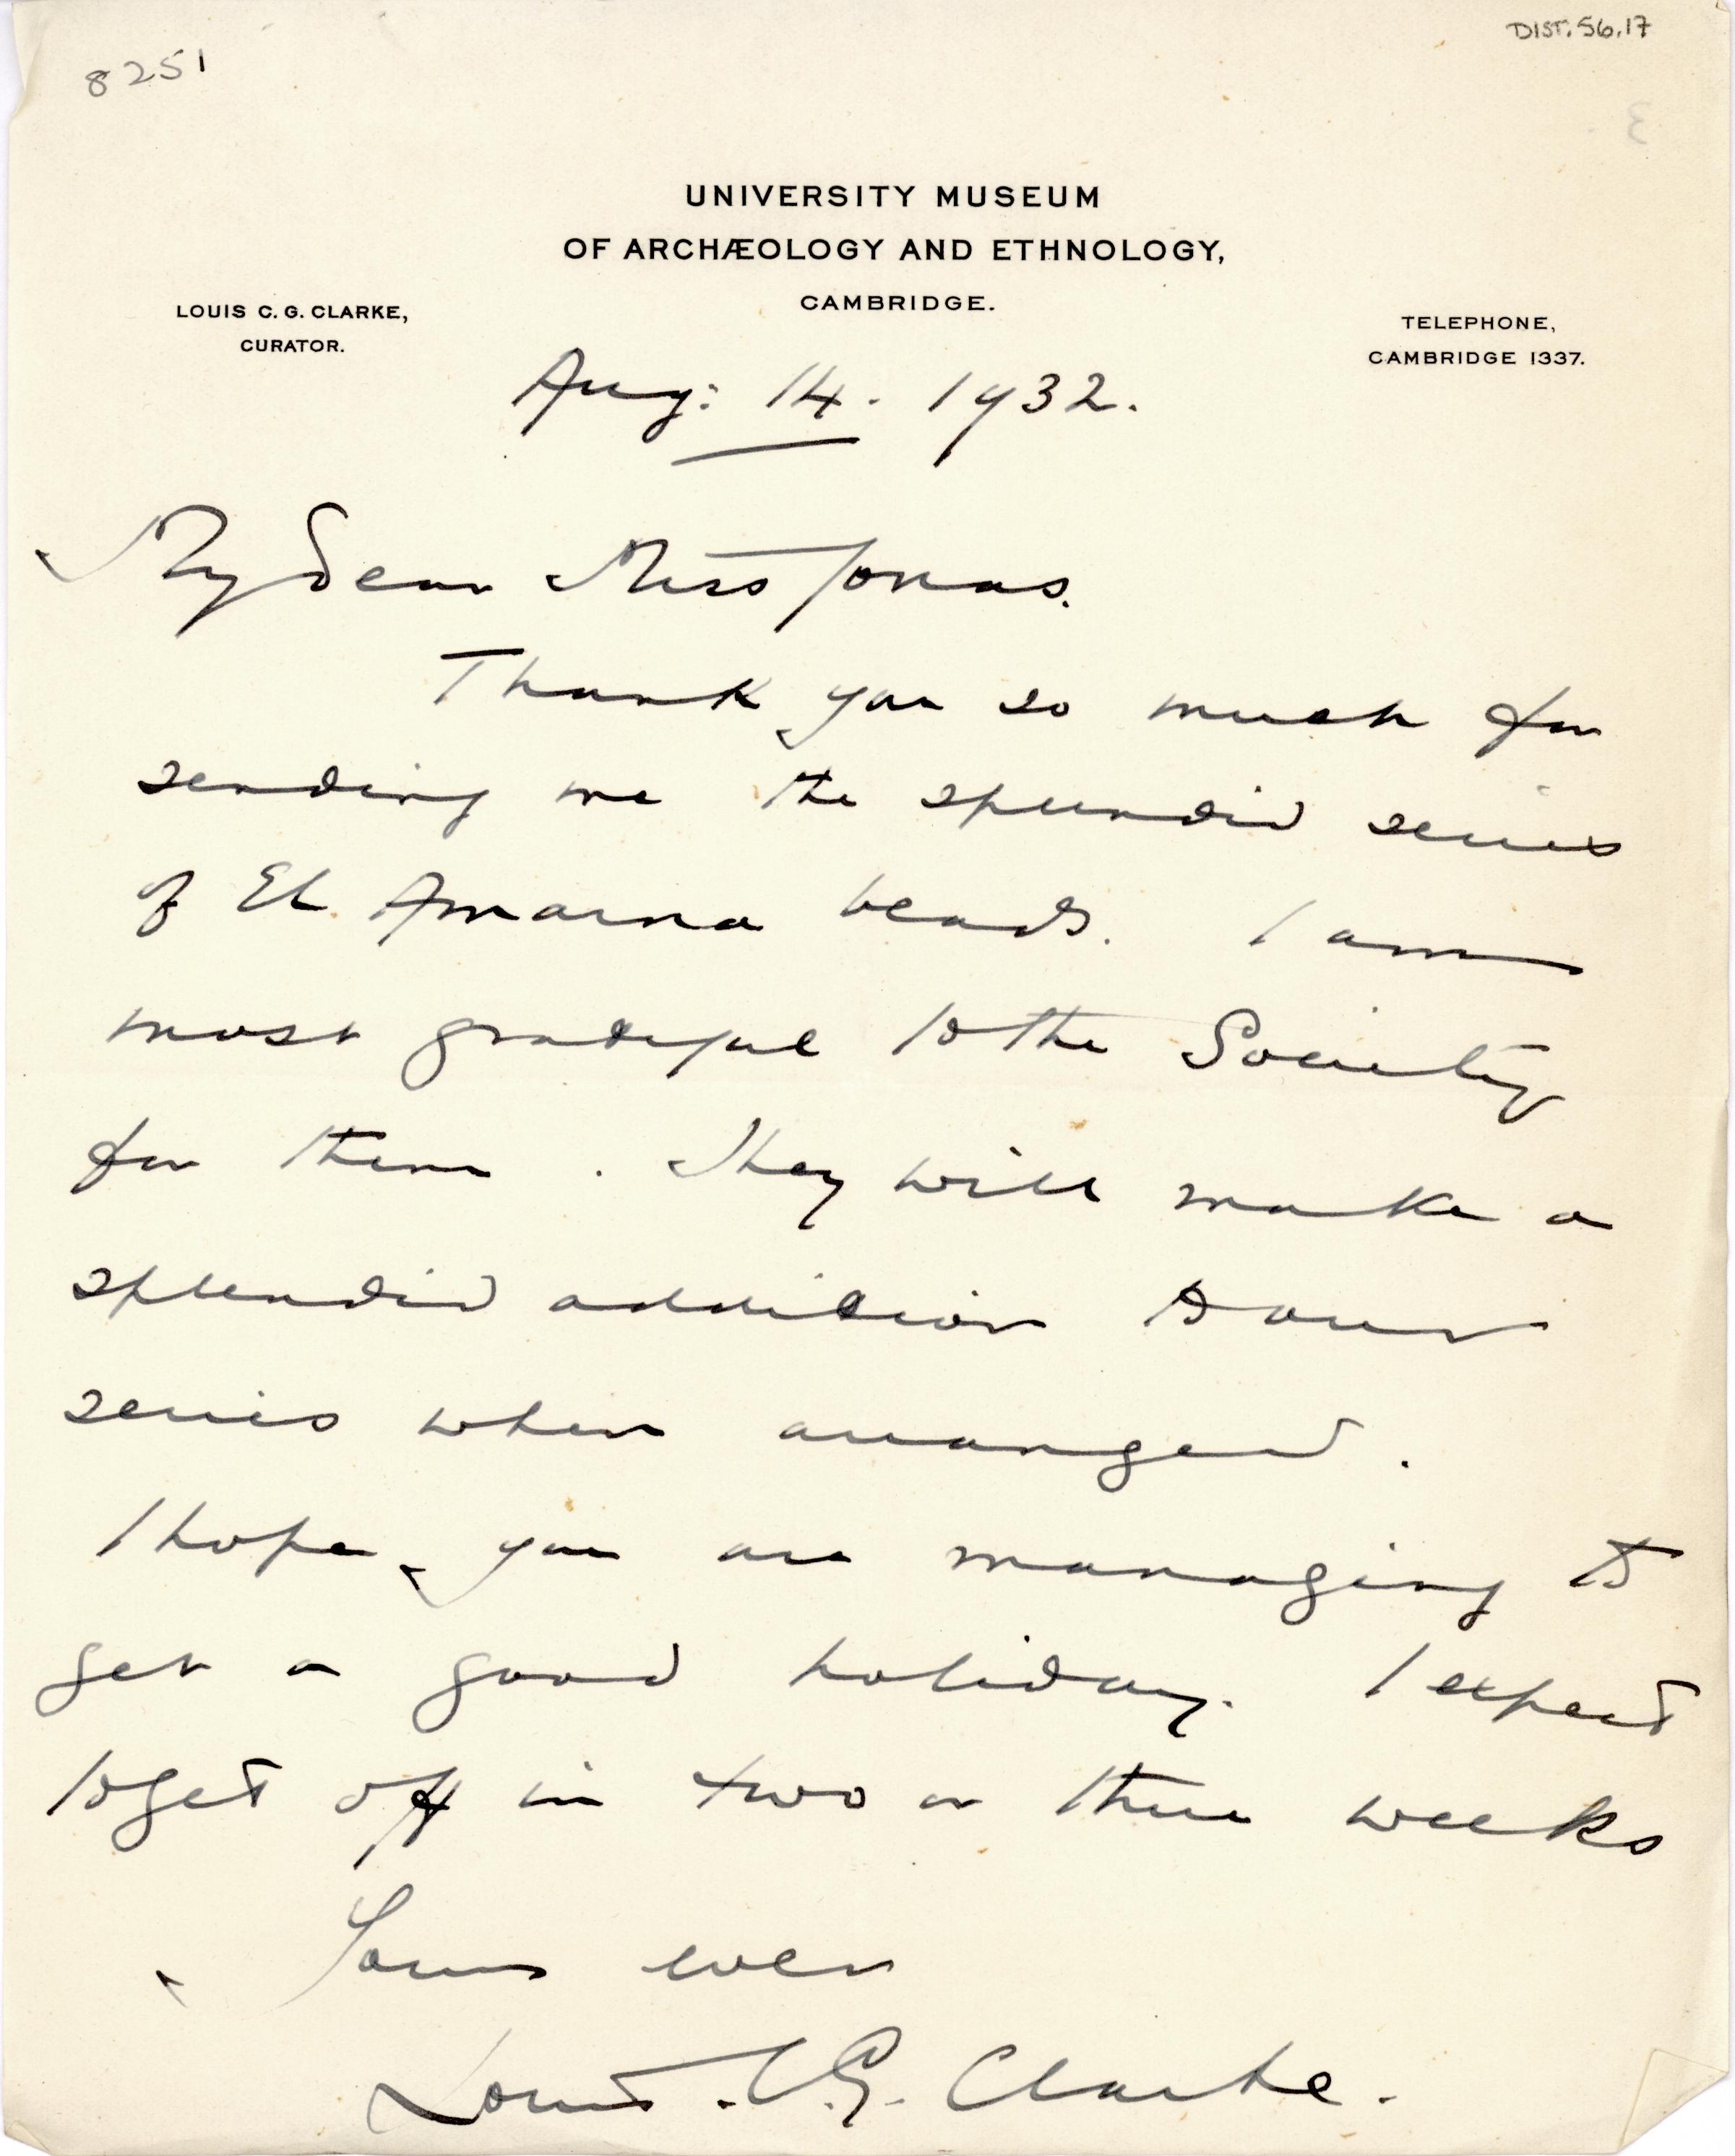 8251
DIST. 56.17
UNIVERSITY MUSEUM
OF ARCHÆOLOGY AND ETHNOLOGY,
CAMBRIDGE.
LOUIS C. G. CLARKE,
CURATOR.
TELEPHONE,
CAMBRIDGE 1337.
Aug: 14. 1932.
My dear Miss Jonas.
Thank you so much for
sending me the splendid series
of El Amarna beads. I am
most grateful to the Society
for them. They will make a
splendid addition to our
series when arranged.
I hope you are managing to
get a good holiday. I expect
to get off in two or three weeks
Yours ever
Louis. C. G. Clarke.